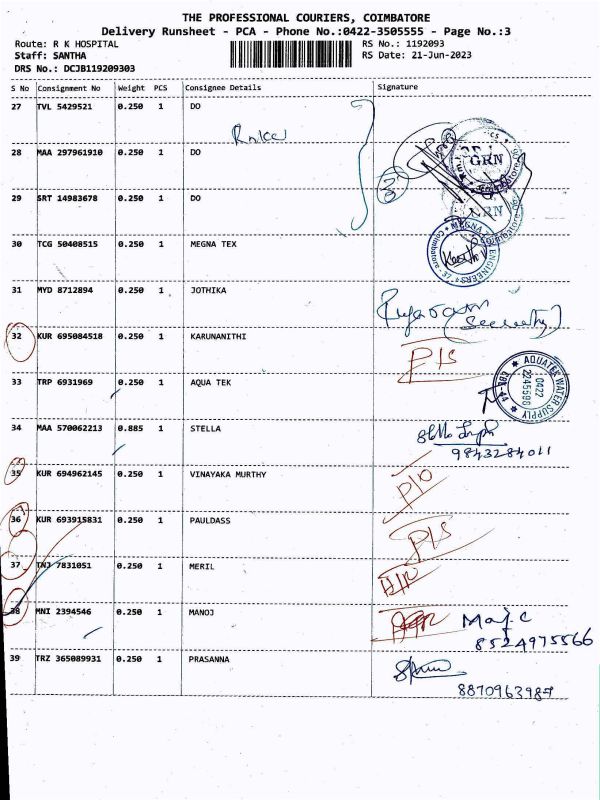 THE PROFESSIONAL COURIERS, COIMBATORE
Delivery Runsheet - PCA - Phone No.:0422-3505555 - Page No.:3
Route: R K HOSPITAL
RS No.: 1192093
Staff: SANTHA
RS Date: 21-Jun-2023
DRS No.: DCJB119209303
S No Consignment No Weight PCS Consignee Details Signature
27 TVL 5429521 0.250 1 DO
28 MAA 297961910 0.250 1 DO
GRN
29 SRT 14983678 0.250 1 DO
GRN
30 TCG 50408515 0.250 1 MEGNA TEX
31 MYD 8712894 0.250 1 JOTHIKA
(Security)
32 KUR 695084518 0.250 1 KARUNANITHI
P/S
33 TRP 6931969 0.250 1 AQUA TEK
AQUATEK WATER SUPPLY
0422
34 MAA 570062213 0.885 1 STELLA
9843284011
35 KUR 694962145 0.250 1 VINAYAKA MURTHY
P/O
36 KUR 693915831 0.250 1 PAULDASS
P/S
37 TNJ 7831051 0.250 1 MERIL
38 MNI 2394546 0.250 1 MANOJ
Manj.C
8524975566
39 TRZ 365089931 0.250 1 PRASANNA
8870963987